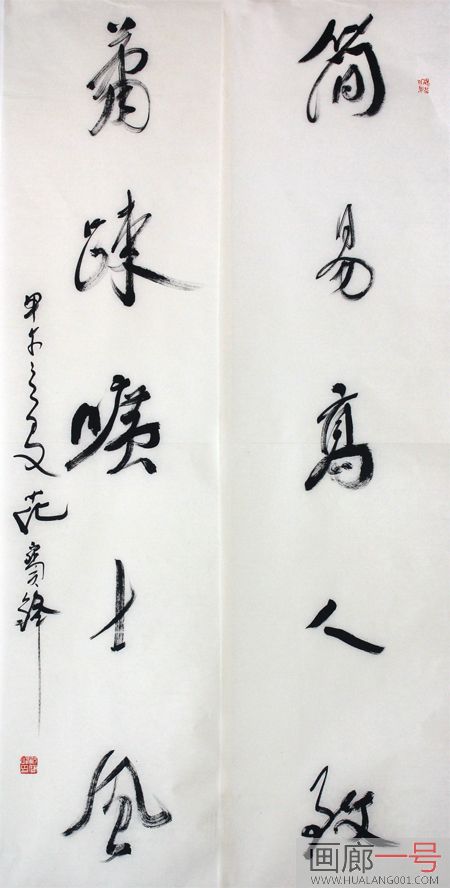 简易高人致
蕭踈曠士风
甲午之夏 范寶鋒
画廊一号
WWW.HUALANG001.COM